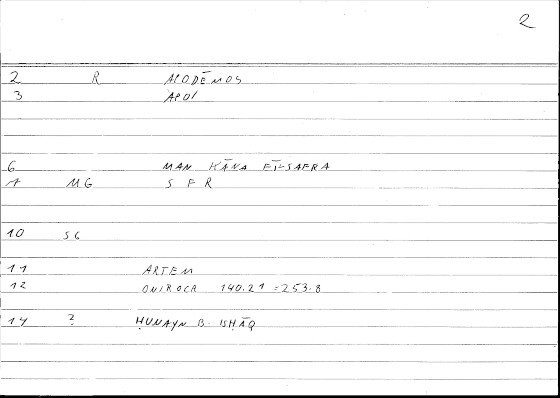 2
2 R APODĒMOS
3 APOI
6 MAN KĀNA FĪ-SAFRA
7 MG S F R
10 SG
11 ARTEM
12 ONIROCR 140.21 = 253.8
14 ? ḤUNAYN B. ISḤĀQ